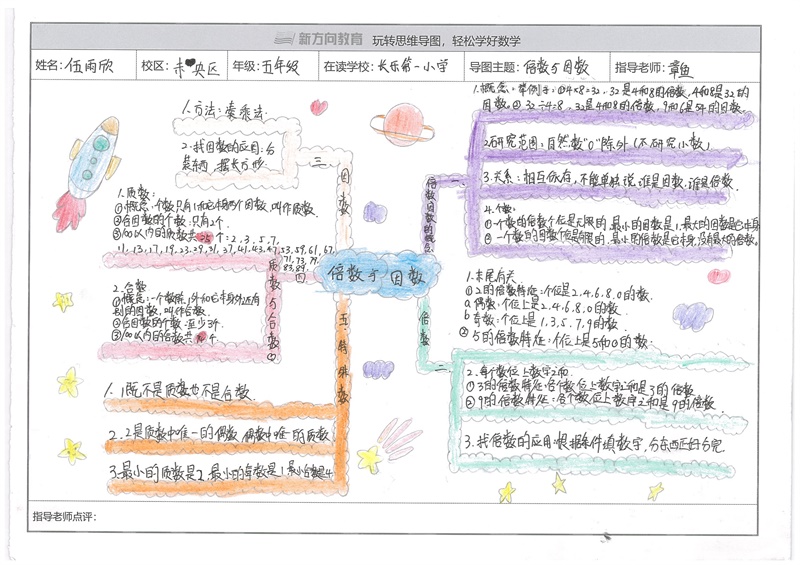 新方向教育 玩转思维导图，轻松学好数学
姓名：伍雨欣 校区：未央区 年级：五年级 在读学校：长乐第一小学 导图主题：倍数与因数 指导老师：章鱼
倍数与因数
倍数因数的概念
一
1.概念：举例子：①4×8=32，32是4和8的倍数，4和8是32的
因数。
2.研究范围：自然数"0"除外（不研究小数）
3.关系：相互依存，不能单独说谁是因数，谁是倍数。
4.个数：
①一个数的倍数个位是无限的，最小的因数是1，最大的因数是它本身
②一个数的因数个位是有限的，最小的倍数是它本身，没有最大的倍数。
倍数
二
1.末尾有关
①2的倍数特征：个位是2.4.6.8.0的数.
a 偶数：个位上是2.4.6.8.0的数.
b 奇数：个位上是1.3.5.7.9的数
②5的倍数特征：个位上是5和0的数.
2.每个数位上数字之和.
①3的倍数特征：各个数位上数字之和是3的倍数
②9的倍数特征：各个数位上数字之和是9的倍数.
3.找倍数的应用：根据条件填数字，分东西正好分完.
因数
三
1.方法：乘乘法.
2.找因数的应用：分
装东西，摆长方形.
质数与合数
四
1.质数：
①概念：一个数只有1和它本身两个因数，叫作质数.
②含因数的个数：只有2个.
③100以内的质数共25个：2,3,5,7,
11,13,17,19,23,29,31,37,41,43,47,53,59,61,67,
71,73,79,
83,89.
2.合数
①概念：一个数除1外和它本身外还有
别的因数，叫作合数.
②含因数的个数：至少3个.
③100以内的合数共
五.特殊数
1.1既不是质数也不是合数.
2.2是质数中唯一的偶数，偶数中唯一的质数.
3.最小的质数是2，最小的奇数是1，最小合数是4
指导老师点评：